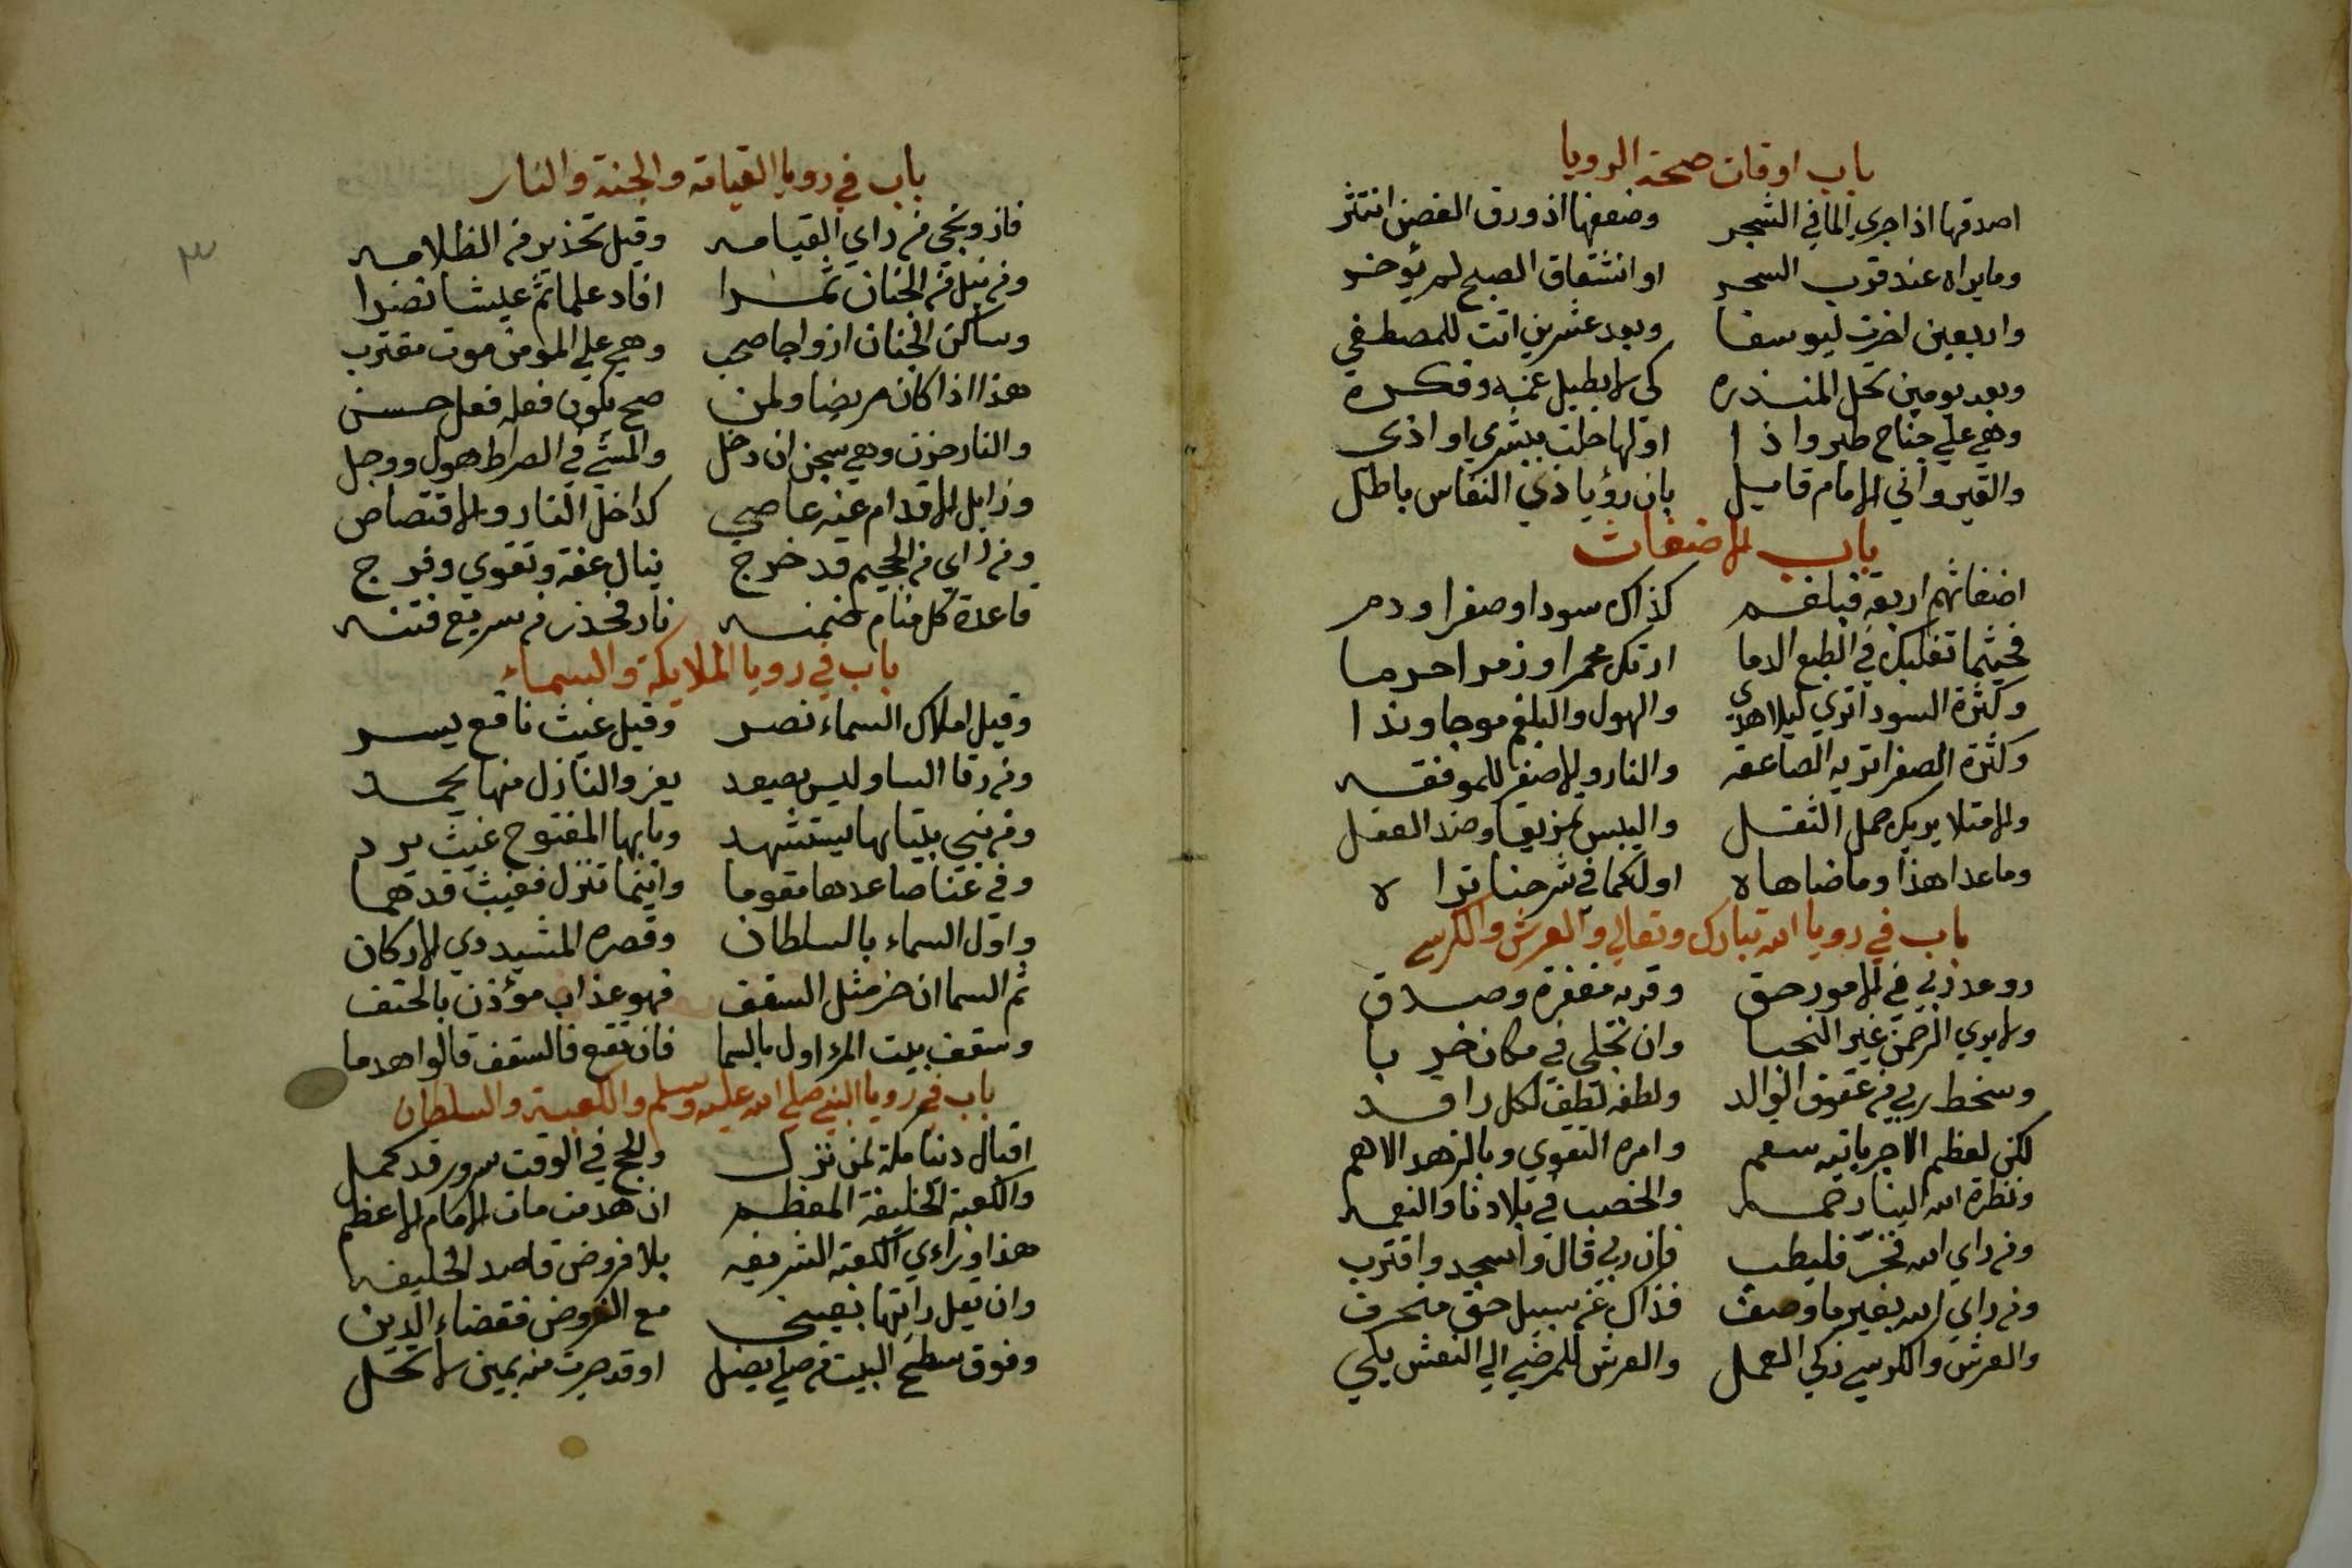 باب اوقات صحة الرويا
اصدقها اذا جري الما في الشجر وضعفها اذ ورق الغصن انتثر
وما يراه عند قرب السحر او انشقاق الصبح لم يؤخر
واربعين اخرت ليوسفا وبعد عشرين اتت للمصطفي
وبعد يومين تحل المنذره كي لا يطيل غمه وفكره
وهي علي جناح طير واذا اولها حلت ببشري او اذى
والقيرواني الامام قايل بان رؤيا ذي النفاس باطل
باب الاضغاث
اضغاثهم اربعة فبلغم كذاك سودا وصفرا ودم
فحيثما تغلبك في الطبع الدما ارتك محمرا وزمرا حرما
وكثرة السودا تري ليلا هدى والهول والبلغم موجا وندا
وكثرة الصفرا تريه الصاعقه والنار والاصفر للموفقه
والامتلا يريك حمل الثقل واليبس تمزيقا وضد العقل
وما عدا هذا وما ضاهاه اوله كما في شرحنا تراه
باب في رويا الله تبارك وتعالي والعرش والكرسي
ووعد ربي في الامور حق وقربه مغفرة وصدق
ولا يري الرحمن غير النجبا وان تجلي في مكان خربا
وسخط ربي من عقوق الوالد ولطفه لطف لكل راقد
لكن لعظم الاجر ياتيه سقم وامره التقوي وبالزهد الاهم
ونظرة الله الينا رحمه والخصب في بلادنا والنعمه
ومن راي الله فخر فليطب فان ربي قال واسجد واقترب
ومن راي الله بغير ما وصف فذاك عن سبيل حق منحرف
والعرش والكرسي زكي العمل والعرش للمرضي الي النعش يلي
٣
باب في رويا القيامة والجنة والنار
فاز ونجي من راي القيامه وقيل تحذير من الظلامه
ومن ينل من الجنان ثمرا افاد علما ثم عيشا نضرا
وساكن الجنان ازواجا صحب وهي علي المؤمن موت مقترب
هذا اذا كان مريضا ولمن صح يكون فعله فعل حسن
والنار حزن وهي سجن ان دخل والمشي في الصراط هول ووجل
وزايل الاقدام عنه عاصي كداخل النار والاقتصاص
ومن راي من الجحيم قد خرج ينال عفة وتقوي وفرج
قاعدة كل منام ضمنه نار فحذر من سريع فتنه
باب في رويا الملايكة والسماء
وقيل املاك السماء نصر وقيل غيث نافع يسر
ومن رقا السما وليس يصعد يغز والنازل منها يحمد
ومن بني بيتا بها يستشهد وبابها المفتوح غيث يرد
وفي غنا صاعدها مقوما واينما تنزل فغيث قد هما
واول السماء بالسلطان وقصره المشيد ذي الاركان
ثم السما ان خر مثل السقف فهو عذاب مؤذن بالحتف
وسقف بيت المرء اول بالسما فان تقع فالسقف قالوا هدما
باب في رويا النبي صلي الله عليه وسلم والكعبة والسلطان
اقبال دنيا ملة لمن نزل والحج في الوقت سرور قد كمل
والكعبة الخليفة المعظم ان هدمت مات الامام الاعظم
هذا وراءي الكعبة الشريفه بلا فروض قاصد الخليفه
وان يقل رايتها بعيني مع الفروض فقضاء الدين
وفوق سطح البيت من صلي يضل او قد جرت منه يمين لا تحل